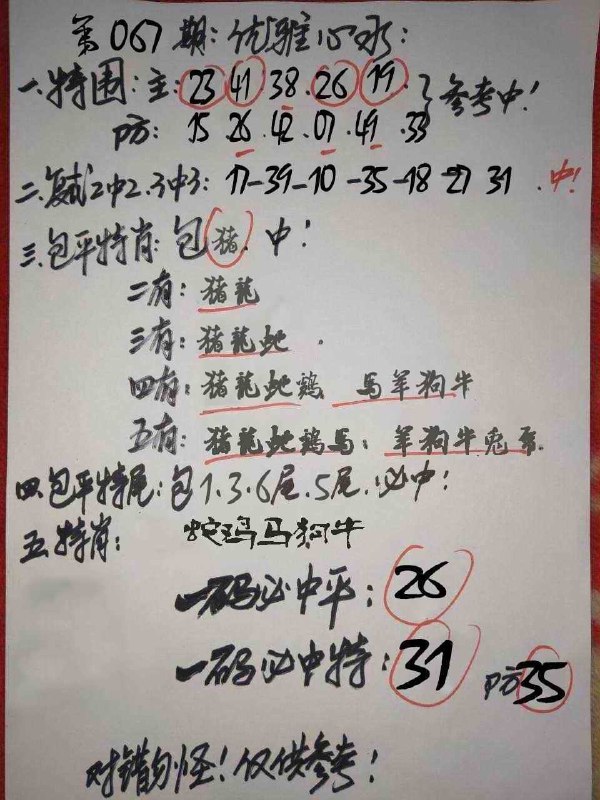 第067期:优雅心水:
一.特围:主:23 41 38.26 19 }参考中!
防:15 26.42.07.49.33
二.复试2中2.3中3:17-39-10-35-18-27 31.中!
三.包平特肖:包猪.中!
二有:猪龍
三有:猪龍虵.
四有:猪龍虵鷄 馬羊狗牛
五有:猪龍虵鷄馬:羊狗牛兔
四.包平特尾:包1.3.6尾.5尾.必中!
五.特肖: 马狗牛
一码必中平:26
一码必中特:31 防35
对错勿怪!仅供参考!